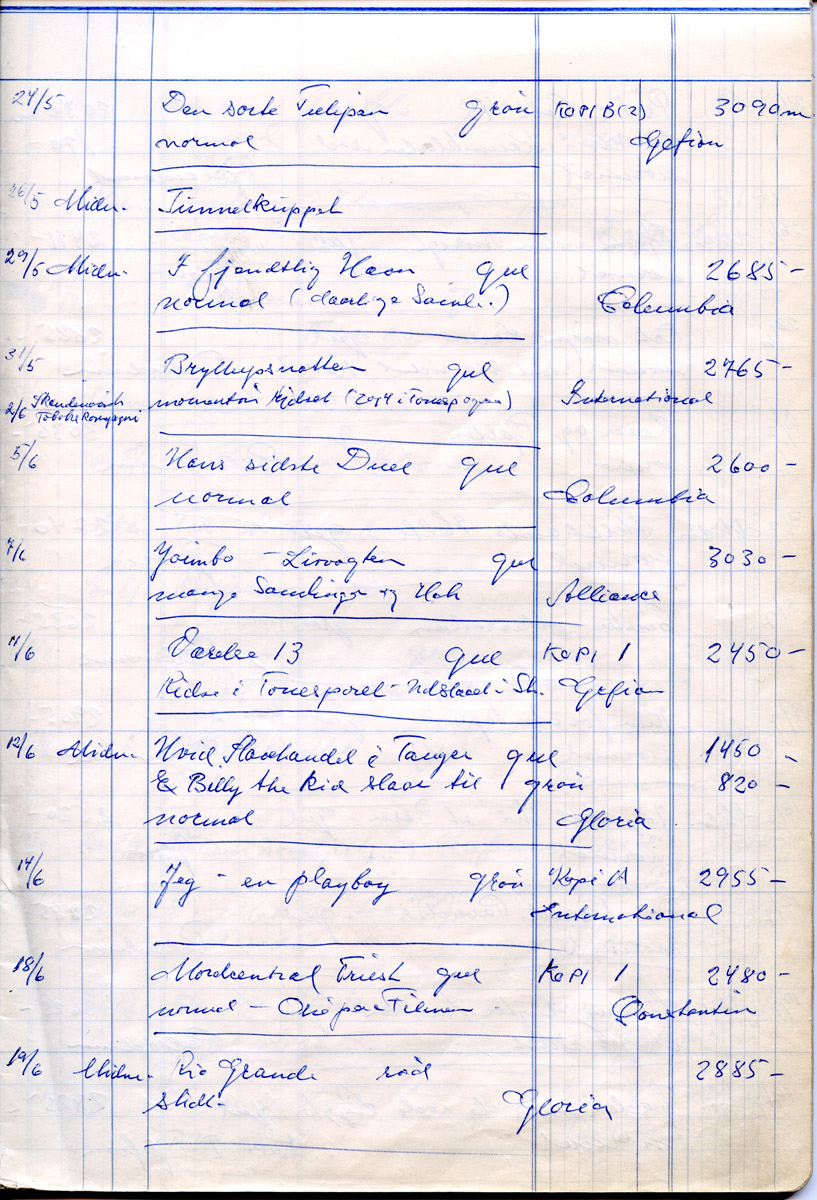 24/5 Den sorte Tulipan grön KOPI B(2) 3090 m
normal Gefion
26/5 Midn. Tunnelkuppet
29/5 Midn. I fjendtlig Havn gul 2685 -
normal (daarlige Saml.) Columbia
31/5 Bryllupsnatten gul 2765 -
2/6 International
5/6 Hans sidste Duel gul 2600 -
normal Columbia
7/6 Yoimbo - Livvagten gul 3030 -
mange Samlinger og Hak Alliance
11/6 Værelse 13 gul KOPI 1 2450 -
Ridse i Tonesporet - Udslaaet i Sk. Gefion
12/6 Midn. Hvid Slavehandel i Tanger gul 1450 -
& Billy the Kid slaar til grön 820 -
normal Gloria
14/6 Jeg - en playboy grön Kopi A 2955 -
International
18/6 Mordcentral Triest gul KOPI 1 2480 -
normal - Olie paa Filmen Constantin
19/6 Midn. Rio Grande röd 2885 -
slidt - Gloria